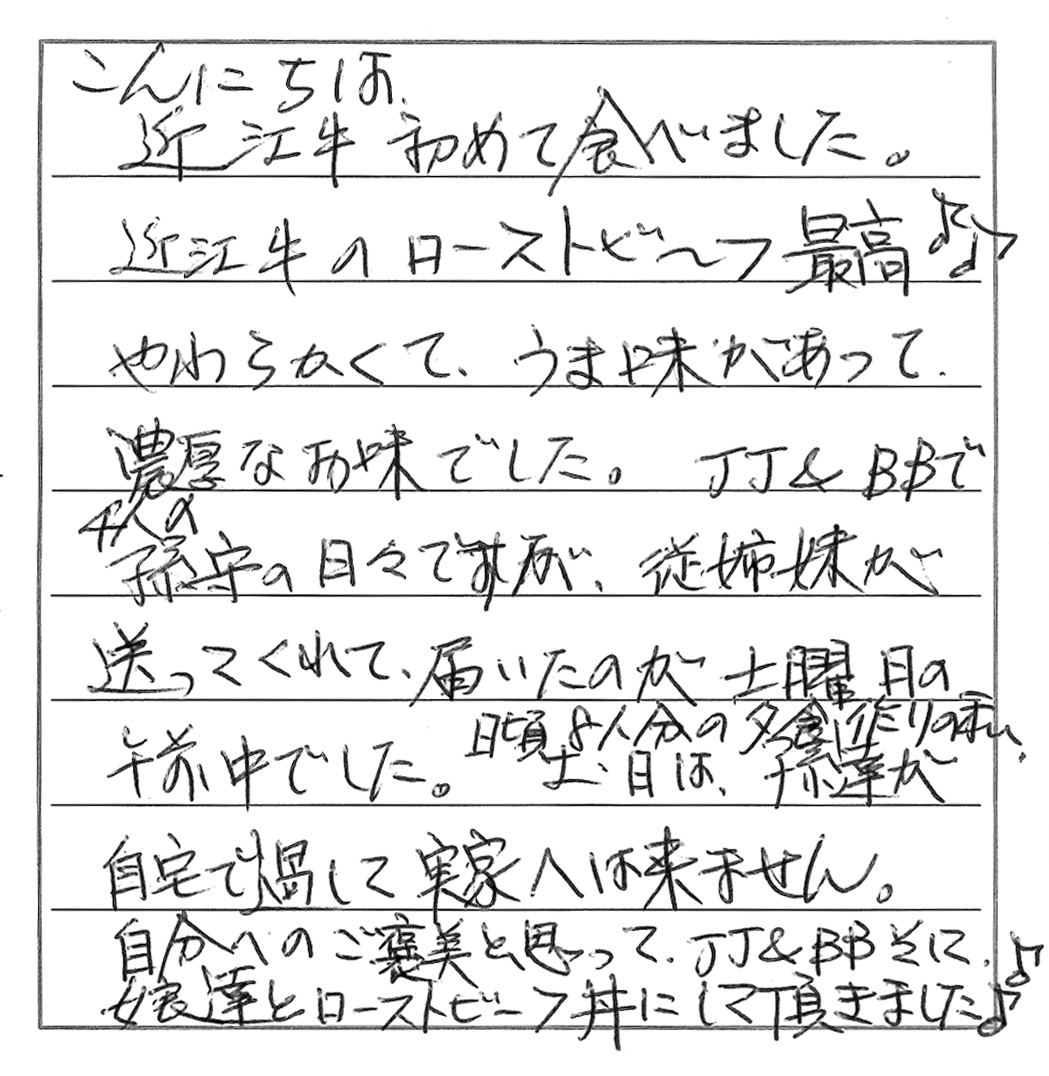 こんにちは、
近江牛初めて食べました。
近江牛のローストビーフ最高♪♪
やわらかくて、うま味があって、
濃厚なお味でした。 JJ&BBで
4人の
孫守の日々ですが、従姉妹が
送ってくれて、届いたのが土曜日の
日頃8人分の夕食作りの私、
午前中でした。 土・日は、孫達が
自宅で過して実家へは来ません。
自分へのご褒美と思って、JJ&BBそに、♪
娘達とローストビーフ丼にして頂きました♪